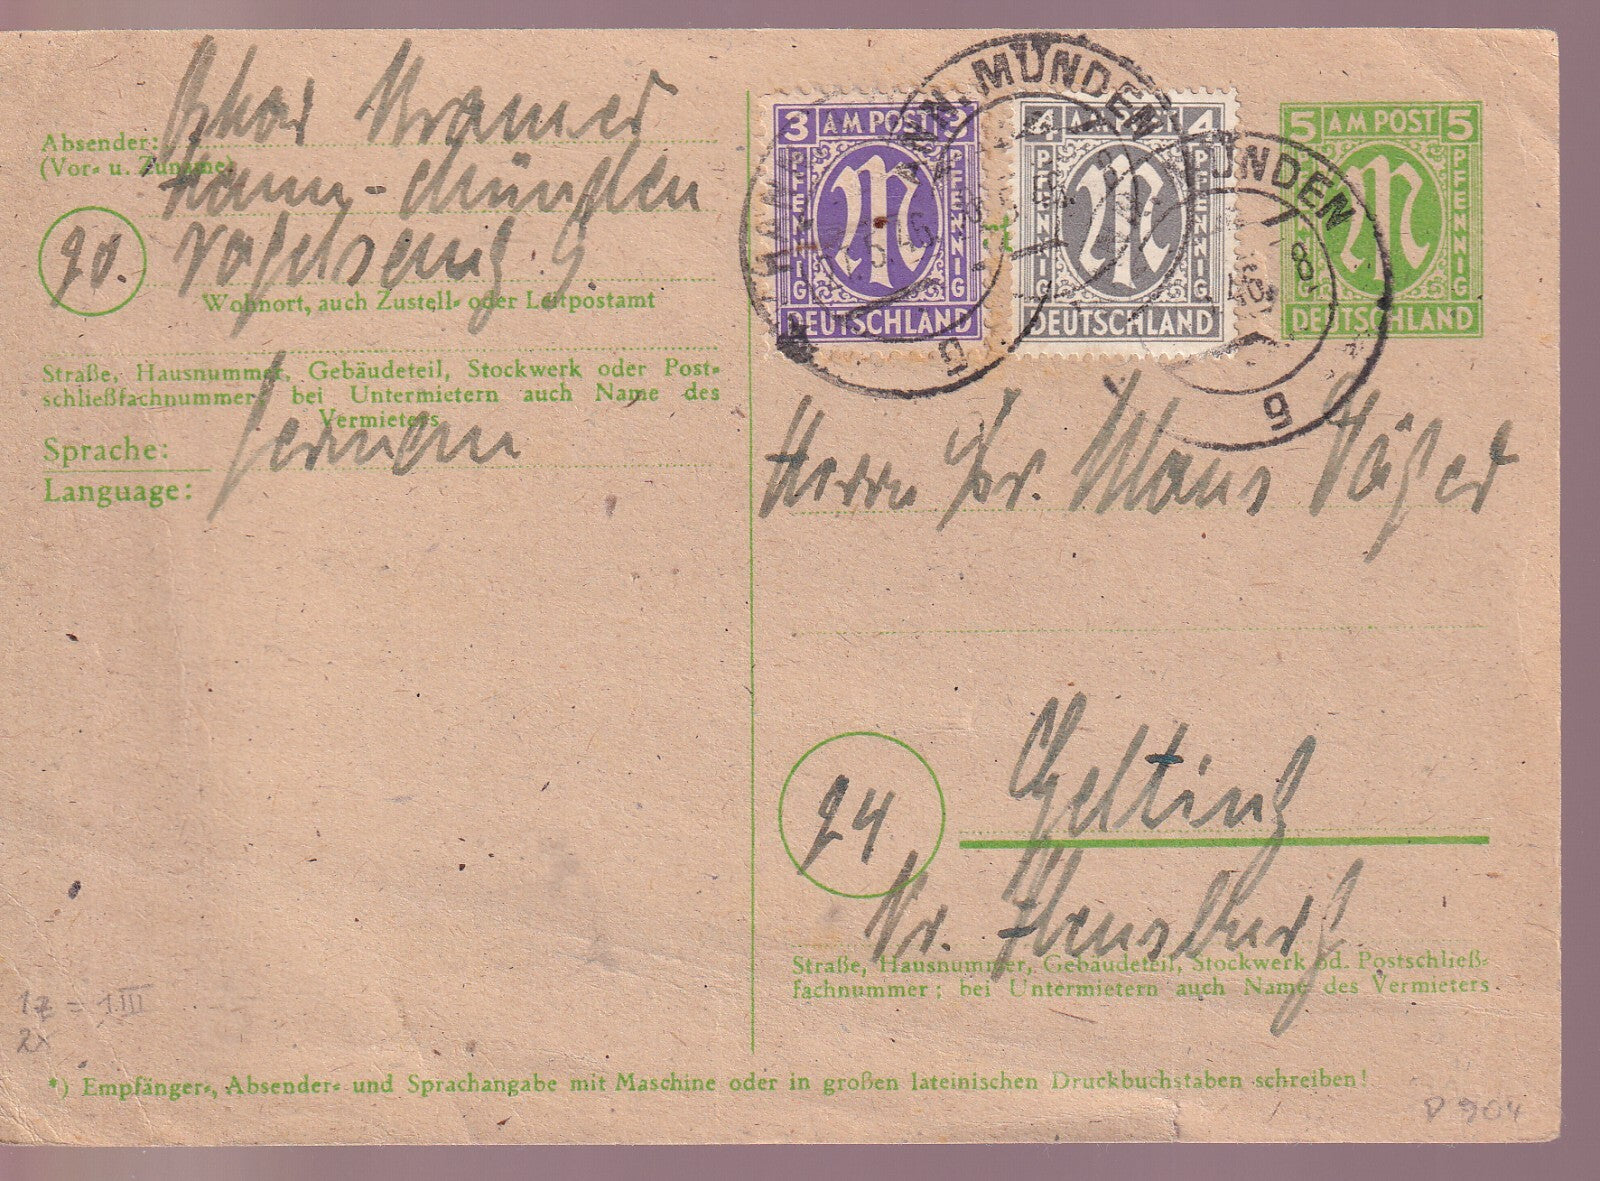 Absender:
(Vor- u. Zuname)
Oskar Kramer
Hann-Münden
20.
Vogelsang 9
Wohnort, auch Zustell- oder Leitpostamt
Straße, Hausnummer, Gebäudeteil, Stockwerk oder Post-
schließfachnummer bei Untermietern auch Name des
Vermieters
Sprache:
Language:
German
3 AM POST 3
PFENNIG PFENNIG
DEUTSCHLAND
4 AM POST 4
PFENNIG PFENNIG
DEUTSCHLAND
5 AM POST 5
PFENNIG PFENNIG
DEUTSCHLAND
HANN. MÜNDEN
MÜNDEN
46
8
Herrn Dr. Klaus
24
Gelting
Kr. Flensburg
Straße, Hausnummer, Gebäudeteil, Stockwerk od. Postschließ-
fachnummer; bei Untermietern auch Name des Vermieters
1z = 1.III
2x
*) Empfänger-, Absender- und Sprachangabe mit Maschine oder in großen lateinischen Druckbuchstaben schreiben!
P 904